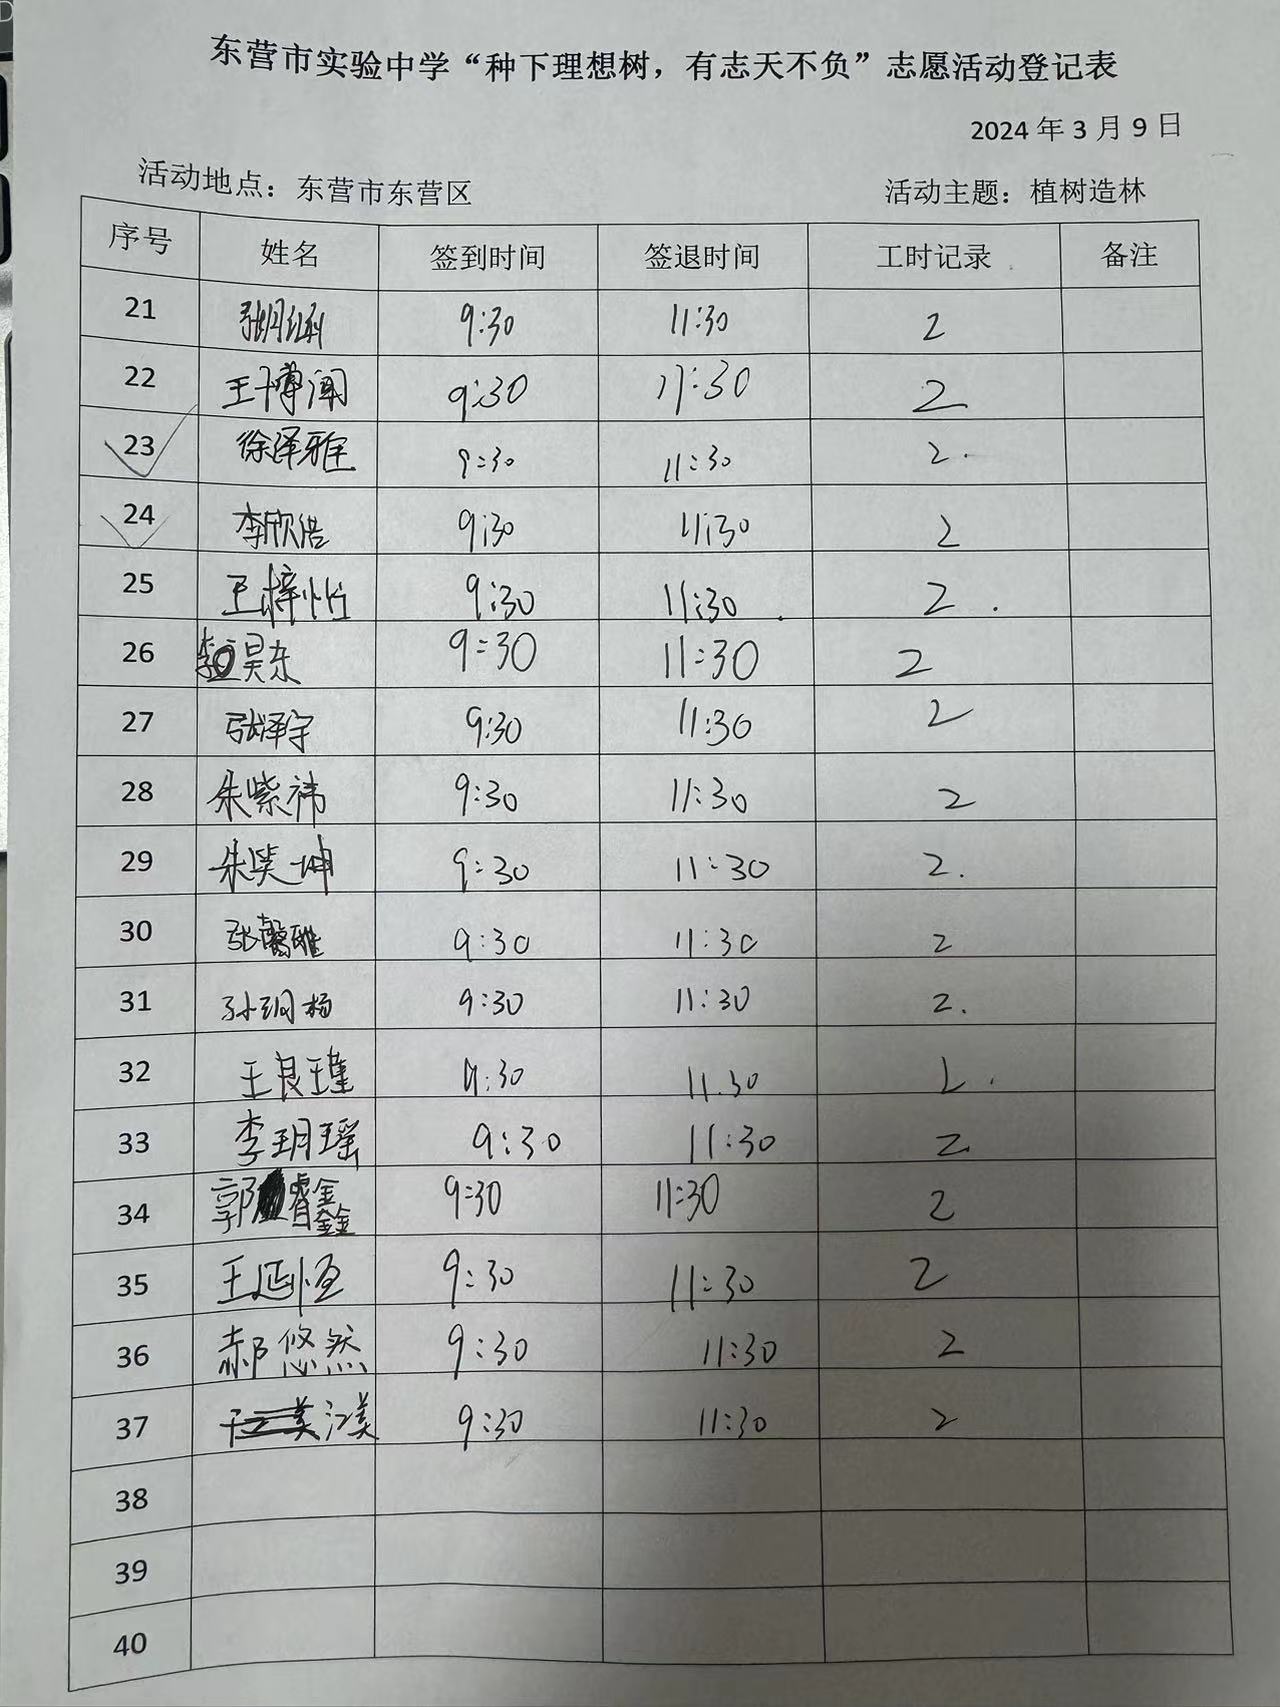 东营市实验中学“种下理想树，有志天不负”志愿活动登记表
2024 年 3 月 9 日
活动地点：东营市东营区 活动主题：植树造林
序号 姓名 签到时间 签退时间 工时记录 备注
21 张月涵 9:30 11:30 2
22 王博闻 9:30 11:30 2
23 徐泽雅 9:30 11:30 2.
24 李欣浩 9:30 11:30 2
25 王梓恒 9:30 11:30 2.
26 李昊东 9:30 11:30 2
27 张泽宇 9:30 11:30 2
28 朱紫祎 9:30 11:30 2
29 朱坤 9:30 11:30 2.
30 张馨雅 9:30 11:30 2
31 孙玥杨 9:30 11:30 2.
32 王良瑾 9:30 11:30
33 李玥瑶 9:30 11:30 2
34 郭睿鑫 9:30 11:30 2
35 王延恒 9:30 11:30 2
36 郝悠然 9:30 11:30 2
37 9:30 11:30 2
38
39
40